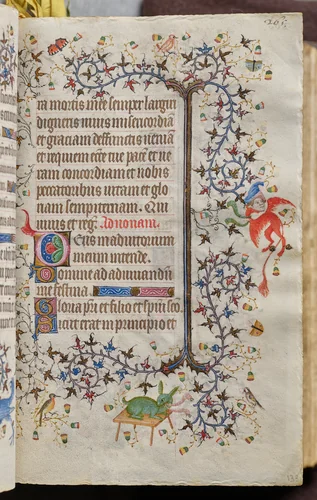 ra mortis mee semper largiri
digneris vivis misericordiā
et graciam deffunctis veniā
et requiem ecc̄e tue pacē et ve
ram concordiam et nobis
peccatoribus vitam et glo
riam sempiternam. Qui
vivis et reg̃. Ad nonam.
Deus in adiutorium
meum intende.
Domine ad adiuvandū
me festina
Gloria pr̄i et filio et spiritui sco
Sicut erat in principio et